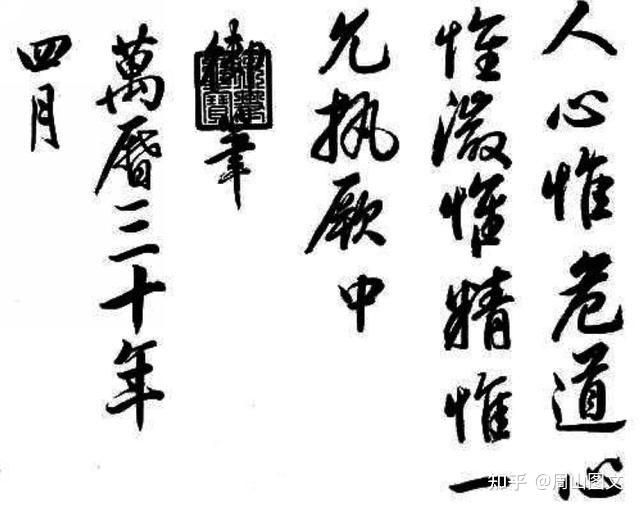 人心惟危道心
惟微惟精惟一
允执厥中
御筆
萬曆三十年
四月
知乎 @周山图文